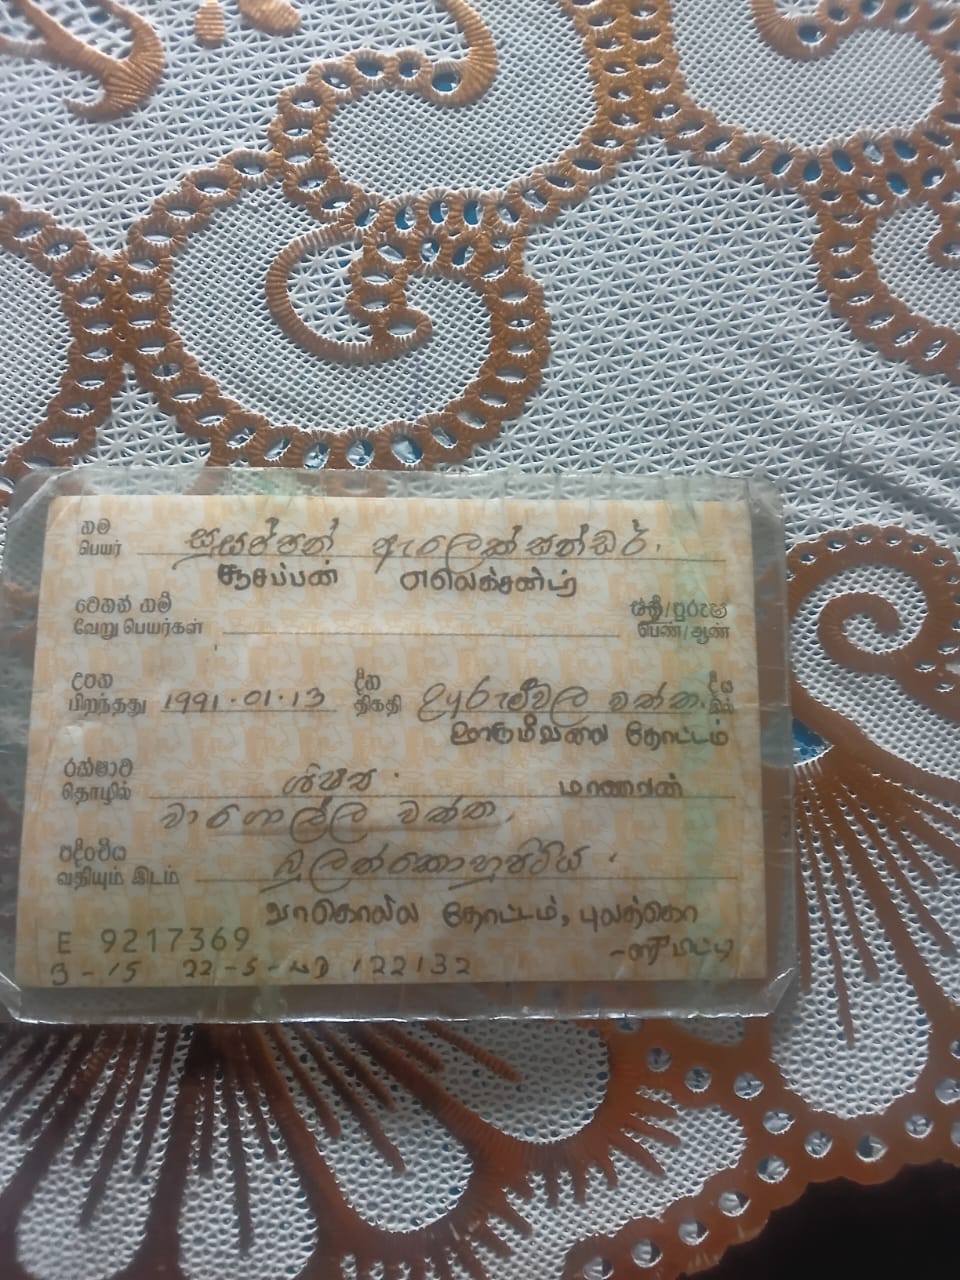 නම සූසප්පන් ඇලෙක්සන්ඩර්.
பெயர் சூசப்பன் எலெக்சண்டர்
වෙනත් නම් ස්ත්‍රී/පුරුෂ
வேறு பெயர்கள் பெண்/ஆண்
උපන් 1991.01.13 දින උඩුරුම්වල වත්ත. දීය
பிறந்தது திகதி தோட்டம்
රක්ෂාව ශිෂ්‍ය.
தொழில் மாணவன்
වාගොල්ල වත්ත,
පදිංචිය බුලත්කොහුපිටිය.
வதியும் இடம்
வாகொல்ல தோட்டம், புலத்கொ
E 9217369
3-15 22-5- 122132